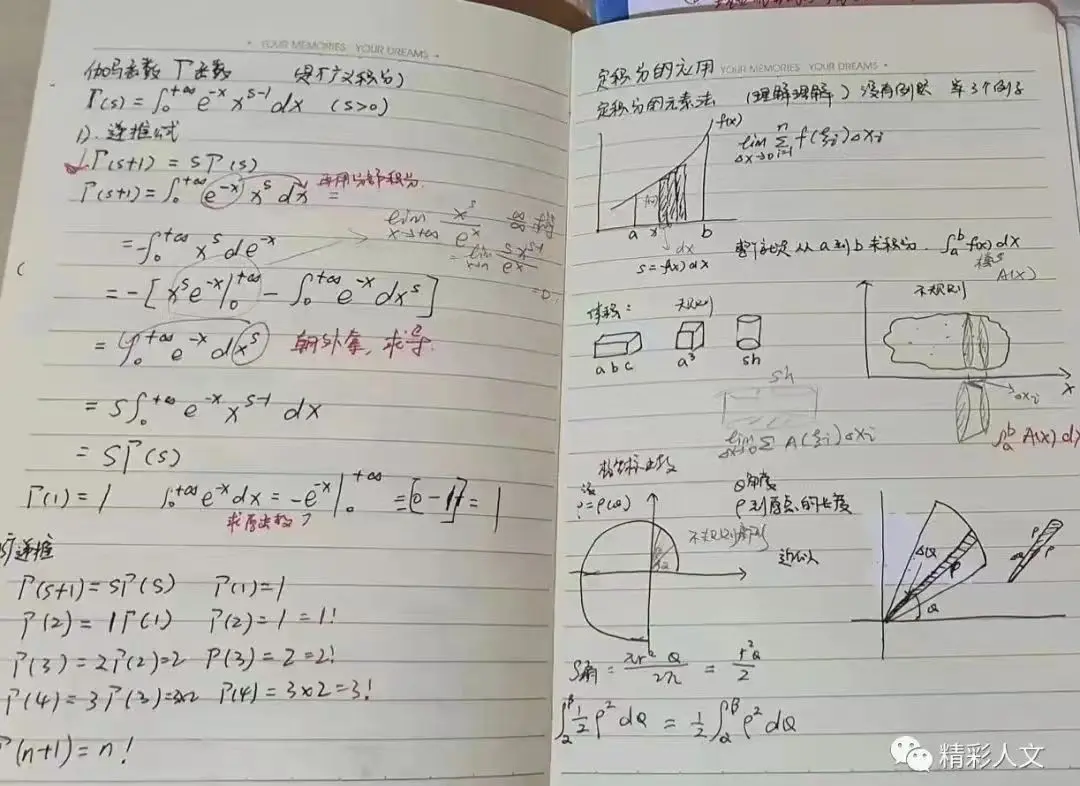 YOUR MEMORIES YOUR DREAMS
伽马函数 Γ函数 (是广义积分)
Γ(s) = ∫₀^{+∞} e^{-x} x^{s-1} dx (s>0)
1). 递推公式
Γ(s+1) = sΓ(s)
Γ(s+1) = ∫₀^{+∞} e^{-x} x^s dx = 再用分部积分.
= -∫₀^{+∞} x^s de^{-x}
lim x→+∞ x^s/e^x ∞/∞
= -[x^s e^{-x}|₀^{+∞} - ∫₀^{+∞} e^{-x} dx^s]
= 0
= ∫₀^{+∞} e^{-x} dx^s 朝外拿, 求导.
= s∫₀^{+∞} e^{-x} x^{s-1} dx
= sΓ(s)
Γ(1) = 1 ∫₀^{+∞} e^{-x} dx = -e^{-x}|₀^{+∞} = -[0-1] = 1
求原函数
递推
Γ(s+1) = sΓ(s) Γ(1) = 1
Γ(2) = 1Γ(1) Γ(2) = 1 = 1!
Γ(3) = 2Γ(2) = 2 Γ(3) = 2 = 2!
Γ(4) = 3Γ(3) = 3×2 Γ(4) = 3×2 = 3!
Γ(n+1) = n!
定积分的应用 YOUR MEMORIES YOUR DREAMS
定积分的元素法 (理解理解) 没有例题 举3个例子
f(x)
lim Δx→0 Σ_{i=1}^{n} f(ξi)Δxi
a x b
dx
s = f(x)dx
整个就是从a到b求积分. ∫_a^b f(x)dx
A(x)
体积: 规则
不规则
abc a³ sh
x
Δxi
sh
lim Δx→0 Σ A(ξi)Δxi
∫_a^b A(x)dx
极坐标
ρ=ρ(θ)
θ角度
ρ到原点的长度
不规则扇形
近似
Δθ ρ θ
S扇 = πr²θ/2π = r²θ/2
∫_α^β ½ρ²dθ = ½∫_α^β ρ²dθ
精彩人文